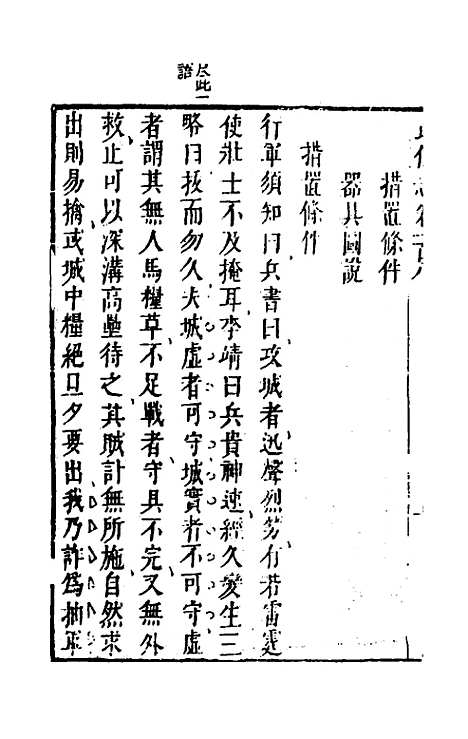 措置條件
器具圖說
措置條件
行軍須知曰兵書曰攻城者迅聲烈勢有若雷霆
使壯士不及掩耳李靖曰兵貴神速經久變生三
略曰拔而勿久夫城虛者可守城實者不可守虛
者謂其無人馬糧草不足戰者守具不完又無外
救止可以深溝高壘待之其賊計無所施自然求
出則易擒或城中糧絕旦夕要出我乃詐爲抽軍
此一
語